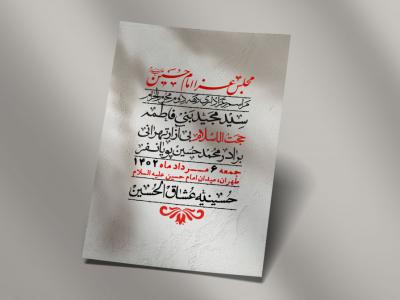 مجلس عزا امام حسین
مراسم عزاداری دهه دوم محرم الحرام
سید مجید بنی فاطمه
حجت الاسلام بی آزار تهرانی
برادر محمد حسین پویانفر
جمعه ۶ مرداد ماه ۱۴۰۲
طهران، میدان امام حسین علیه السلام
حسینیه عشاق الحسین